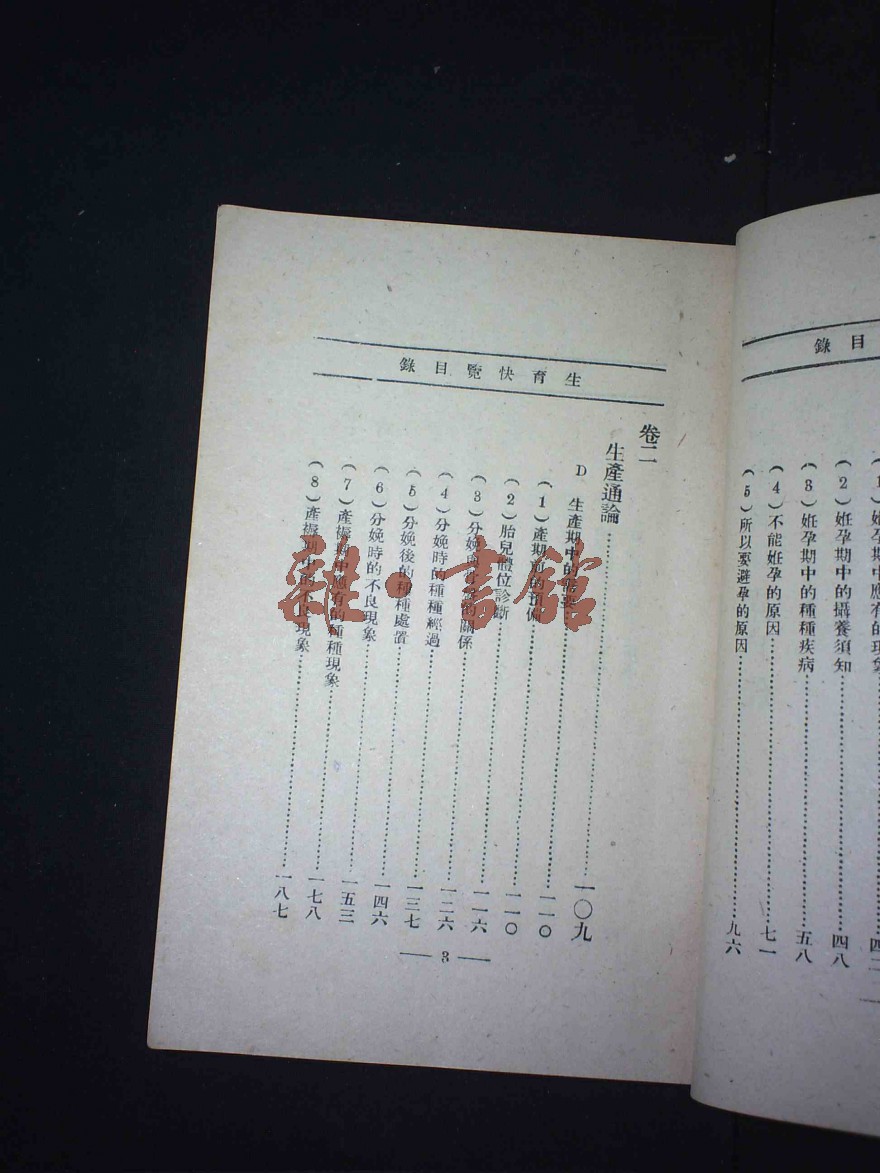 錄目
(2)妊孕期中的攝養須知……四八
(3)妊孕期中的種種疾病……五八
(4)不能妊孕的原因……七一
(5)所以要避孕的原因……九六
生育快覽目錄
卷二
生產通論……一〇九
D 生產期中的需要
(1)產期前的預備……一一〇
(2)胎兒體位診斷……一一〇
(3)分娩與的關係……一一六
(4)分娩時的種種經過……一二六
(5)分娩後的種種處置……一三七
(6)分娩時的不良現象……一四六
(7)產褥期中應有的種種現象……一五三
(8)產褥期中的不良現象……一七八
一八七
3
雜·書館